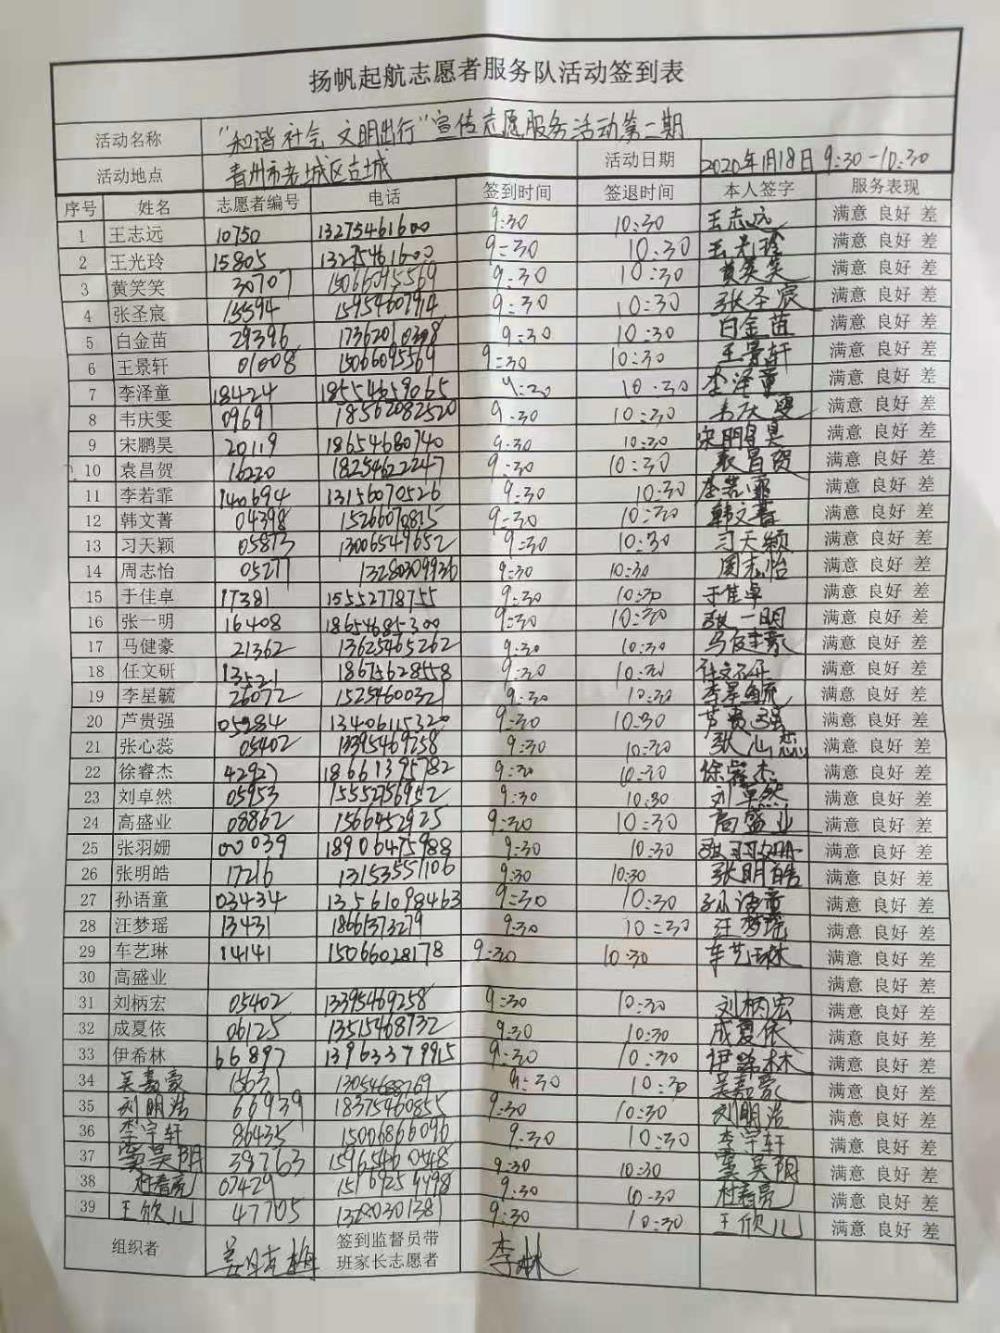 扬帆起航志愿者服务队活动签到表
活动名称 "和谐社会 文明出行"宣传志愿服务活动第二期
活动地点 青州市老城区古城 活动日期 2020年1月18日 9:30-10:30
序号 姓名 志愿者编号 电话 签到时间 签退时间 本人签字 服务表现
1 王志远 10750 13275461600 9:30 10:30 王志远 满意 良好 差
2 王光玲 15805 13275461600 9:30 10:30 王光玲 满意 良好 差
3 黄笑笑 30707 15066095569 9:30 10:30 黄笑笑 满意 良好 差
4 张圣宸 15594 15954607914 9:30 10:30 张圣宸 满意 良好 差
5 白金苗 29396 9:30 10:30 白金苗 满意 良好 差
6 王景轩 01008 15066095569 9:30 10:30 王景轩 满意 良好 差
7 李泽童 18424 18554659065 9:30 10:30 李泽童 满意 良好 差
8 韦庆雯 09691 18562082520 9:30 10:30 韦庆雯 满意 良好 差
9 宋鹏昊 20119 18654680740 9:30 10:30 宋鹏昊 满意 良好 差
10 袁昌贺 16220 18254622247 9:30 10:30 袁昌贺 满意 良好 差
11 李若霏 140694 13156070526 9:30 10:30 李若霏 满意 良好 差
12 韩文菁 04398 15266070815 9:30 10:30 韩文菁 满意 良好 差
13 习天颖 05873 13006549652 9:30 10:30 习天颖 满意 良好 差
14 周志怡 05277 13280309936 9:30 10:30 周志怡 满意 良好 差
15 于佳卓 17381 15552778755 9:30 10:30 于佳卓 满意 良好 差
16 张一明 16408 18654685300 9:30 10:30 张一明 满意 良好 差
17 马健豪 21362 13625465262 9:30 10:30 马健豪 满意 良好 差
18 任文研 13521 18675628558 9:30 10:30 任文研 满意 良好 差
19 李星毓 26072 15254600321 9:30 10:30 李星毓 满意 良好 差
20 芦贵强 05984 13406115320 9:30 10:30 芦贵强 满意 良好 差
21 张心蕊 05402 13395469258 9:30 10:30 张心蕊 满意 良好 差
22 徐睿杰 42927 18661395782 9:30 10:30 徐睿杰 满意 良好 差
23 刘卓然 05953 15552756952 9:30 10:30 刘卓然 满意 良好 差
24 高盛业 08862 1566452925 9:30 10:30 高盛业 满意 良好 差
25 张羽姗 00039 18906475988 9:30 10:30 张羽姗 满意 良好 差
26 张明皓 17216 13153557106 9:30 10:30 张明皓 满意 良好 差
27 孙语童 03434 13561098463 9:30 10:30 孙语童 满意 良好 差
28 汪梦瑶 13431 18661373279 9:30 10:30 汪梦瑶 满意 良好 差
29 车艺琳 14141 15066028178 9:30 10:30 车艺琳 满意 良好 差
30 高盛业 满意 良好 差
31 刘柄宏 05402 13395469258 9:30 10:30 刘柄宏 满意 良好 差
32 成夏依 06125 13515468732 9:30 10:30 成夏依 满意 良好 差
33 伊希林 66897 13963379915 9:30 10:30 伊希林 满意 良好 差
34 吴嘉豪 13054688269 9:30 10:30 吴嘉豪 满意 良好 差
35 刘明浩 66939 18375460855 9:30 10:30 刘明浩 满意 良好 差
36 李宇轩 86435 15006866096 9:30 10:30 李宇轩 满意 良好 差
37 窦昊阴 39763 15965460548 9:30 10:30 窦昊阴 满意 良好 差
38 杜春亮 07429 9:30 10:30 杜春亮 满意 良好 差
39 王欣儿 47705 13280301381 9:30 10:30 王欣儿 满意 良好 差
组织者 签到监督员带班家长志愿者 李林